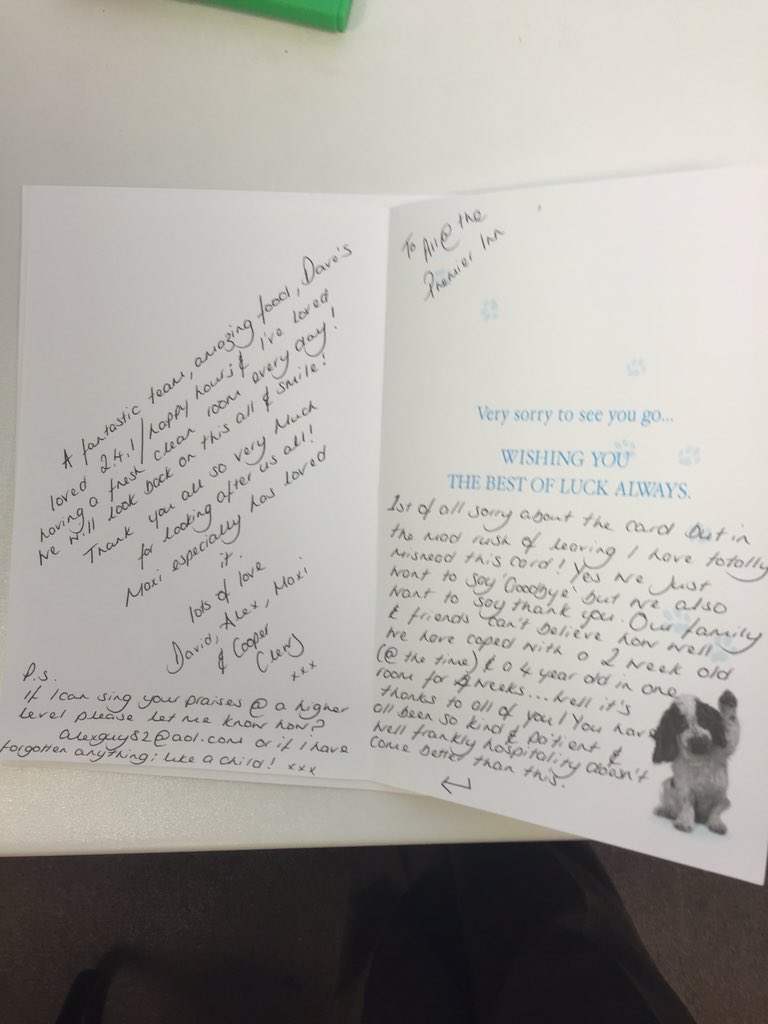 To All @ the
Premier Inn
Very sorry to see you go...
WISHING YOU
THE BEST OF LUCK ALWAYS.
1st of all sorry about the card but in
the mad rush of leaving I have totally
misread this card! Yes we just
want to say 'Goodbye' but we also
want to say thank you. Our family
& friends can't believe how well
we have coped with a 2 week old
(@ the time) & a 4 year old in one
room for weeks... well it's
thanks to all of you! You have
all been so kind & patient &
well frankly hospitality doesn't
come better than this.
A fantastic team, amazing food, Dave's
loved 2.4.1/happy hours & I've loved
having a fresh clean room every day!
We will look back on this all & smile!
Thank you all so very much
for looking after us all!
Maxi especially has loved
it.
lots of love
David, Alex, Maxi
& Cooper
Clews
xxx
P.s.
If I can sing your praises @ a higher
level please let me know how?
alexguy82@aol.com or if I have
forgotten anything; like a child! xxx